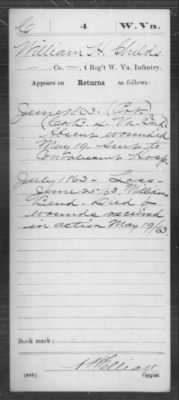 C | 4 | W. Va.
William H. Childs
Co. —, 4 Reg't W. Va. Infantry.
Appears on Returns as follows:
June 1863.
Absent wounded
May 19. Sent to
Convalescent Hosp.
July 1863 - Loss -
June 25/63, Millikens
Bend - Died of
wounds received
in action May 19/63
Book mark:
(546)
Copyist.